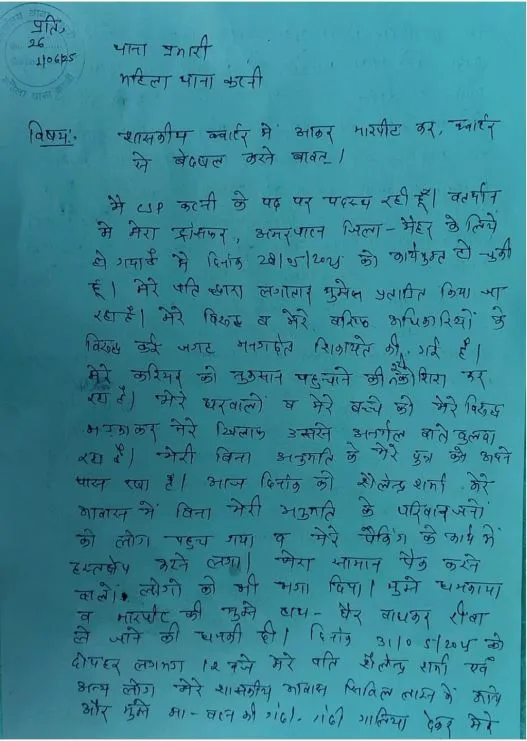 प्रति,
26
1/06/25
थाना प्रभारी
महिला थाना कटनी
विषय:- शासकीय क्वार्टर में आकर मारपीट कर, क्वार्टर
से बेदखल करने बाबत् ।
मै CSP कटनी के पद पर पदस्थ रही हूँ। वर्तमान
मे मेरा ट्रांसफर, अमरपाटन जिला - मैहर के लिये
हो गया है मै दिनांक को कार्यमुक्त हो चुकी
हूँ। मेरे पति द्वारा लगातार मुझे प्रताडित किया जा
रहा है। मेरे विरूद्ध व मेरे वरिष्ठ अधिकारियों के
विरूद्ध कई जगह मनगढंत शिकायते की गई है।
मेरे करियर को नुकसान पहुचाने की कोशिश कर
रहा है। मेरे घरवालों व मेरे बच्चे को मेरे विरूद्ध
भडकाकर मेरे खिलाफ उससे अनर्गल बाते बुलवा
रहा है। मेरी बिना अनुमति के मेरे पुत्र को अपने
पास रखा है। आज दिनांक को शैलेन्द्र शर्मा मेरे
आवास में बिना मेरी अनुमति के परिवारजनों
को लोग पहुच गया व मेरे पैकिंग के कार्य में
हस्तक्षेप करने लगा। मेरा सामान पैक करने
वालो लोगो को भी भगा दिया। मुझे धमकाया
व मारपीट की मुझे हाथ - पैर बांधकर रीवा
ले जाने की धमकी दी। दिनांक 31/05/2025 को
दोपहर लगभग 12 बजे मेरे पति शैलेन्द्र शर्मा एवं
अन्य लोग मेरे शासकीय आवास सिविल लाईन में आये
और मुझे मा - बहन की गंदी - गंदी गालिया देकर मेरे